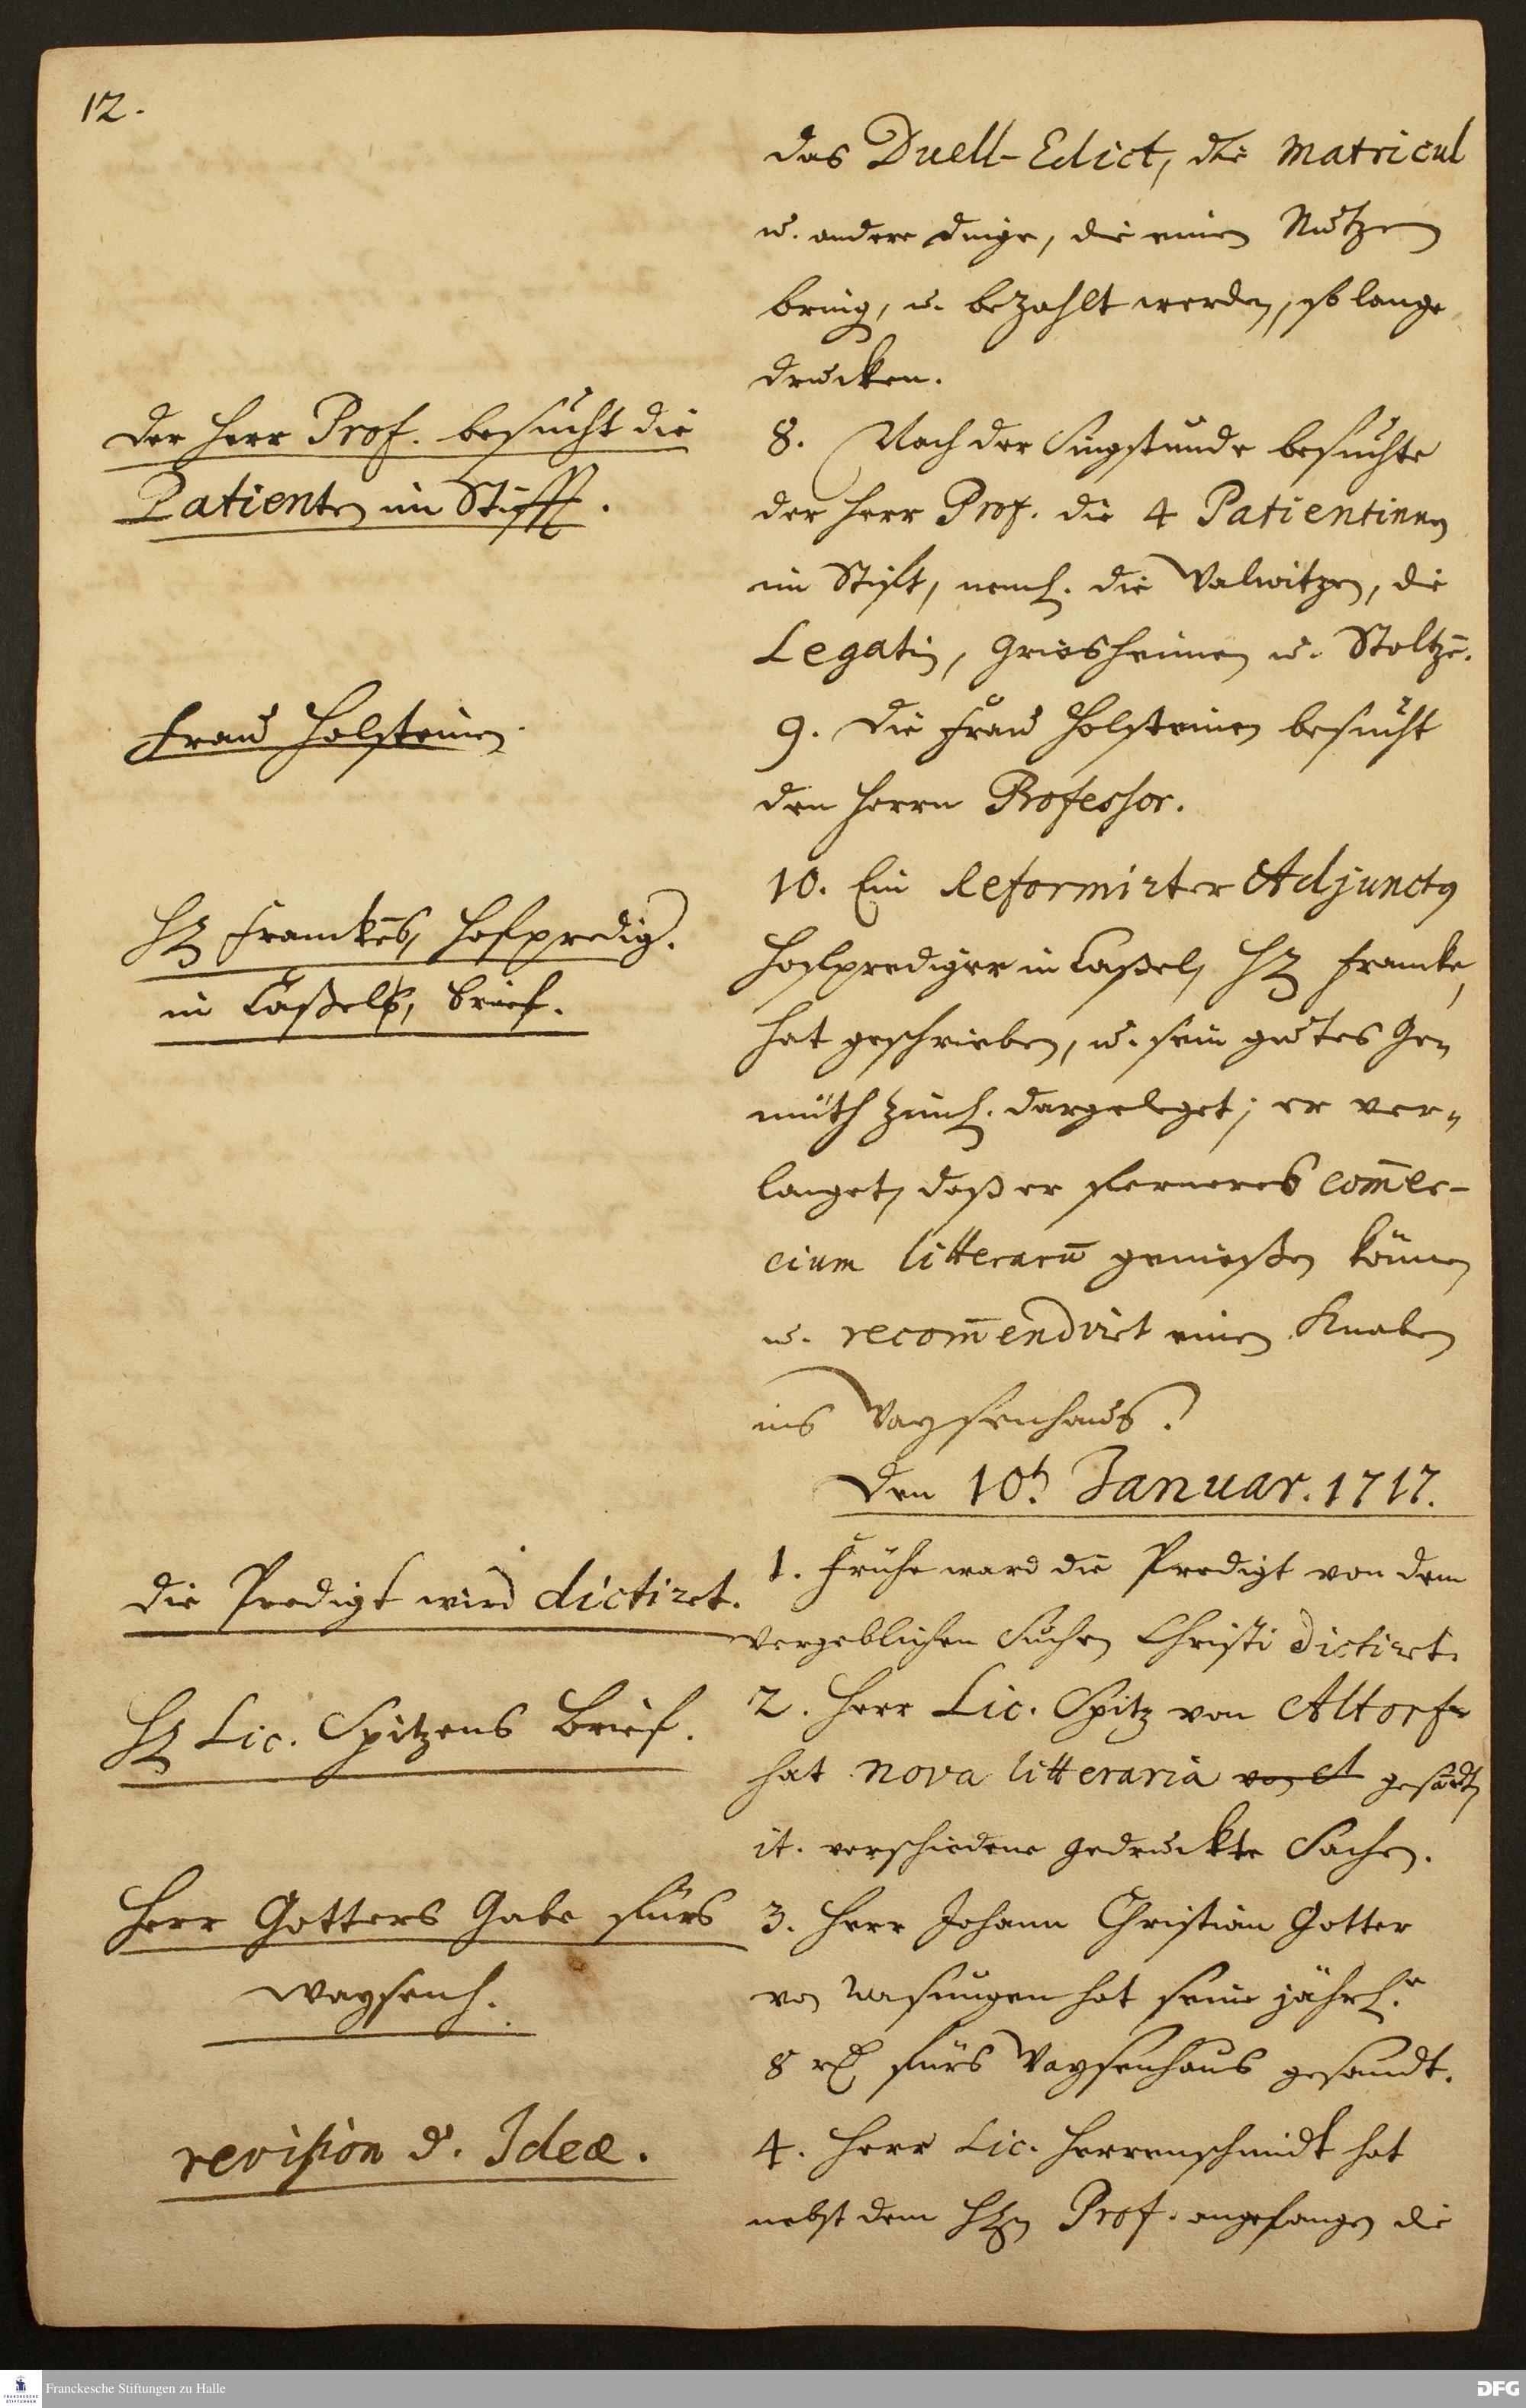 12.
das Duell-Edict, die Matricul
u. andere dinge, die einen Nutzen
bring, u. bezahlt werden, so lange
drucken.
Der Herr Prof. besucht die
Patienten im Stifft.
8. Nach der Singstunde besuchte
der Herr Prof. die 4 Patientinnen
im Stift, neml. die Walwitzen, die
Legatin, Griesheimen u. Stoltzē.
Frau Holsteinen.
9. Die Frau Holsteinen besucht
den Herrn Professor.
H. Franckēs, Hofpredig.
in Caßel, brief.
10. Ein Reformirter Adjunctus
Hofprediger in Caßel, H. Francke,
hat geschrieben, u. sein gutes Ge-
müth ziml. dargeleget; er ver-
langet, daß er ferneres com̄er-
cium litterarū genießen könne
u. recom̄endirt einen Knaben
ins Waysenhaus.
Den 10t. Januar. 1717.
Die Predigt wird dictiret.
1. Frühe ward die Predigt von dem
vergeblichen Suchen Christi dictiret.
H. Lic. Spitzens Brief.
2. Herr Lic. Spitz von Altorf
hat nova litteraria gesandt,
it. verschiedene gedruckte Sachen.
Herr Gotters Gabe fürs
Waysenh.
3. Herr Johann Christian Gotter
von Wasungen hat seine jährl.e
8 rl fürs Waysenhaus gesandt.
revision d. Ideæ.
4. Herr Lic. Herrenschmidt hat
nebst dem Hn Prof. angefangen die
Franckesche Stiftungen zu Halle
DFG